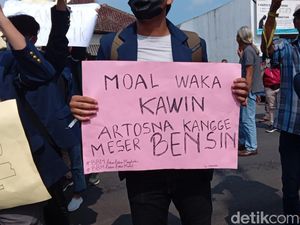 MOAL WAKA
KAWIN
ARTOSNA KANGGE
MESER BENSIN
detikcom